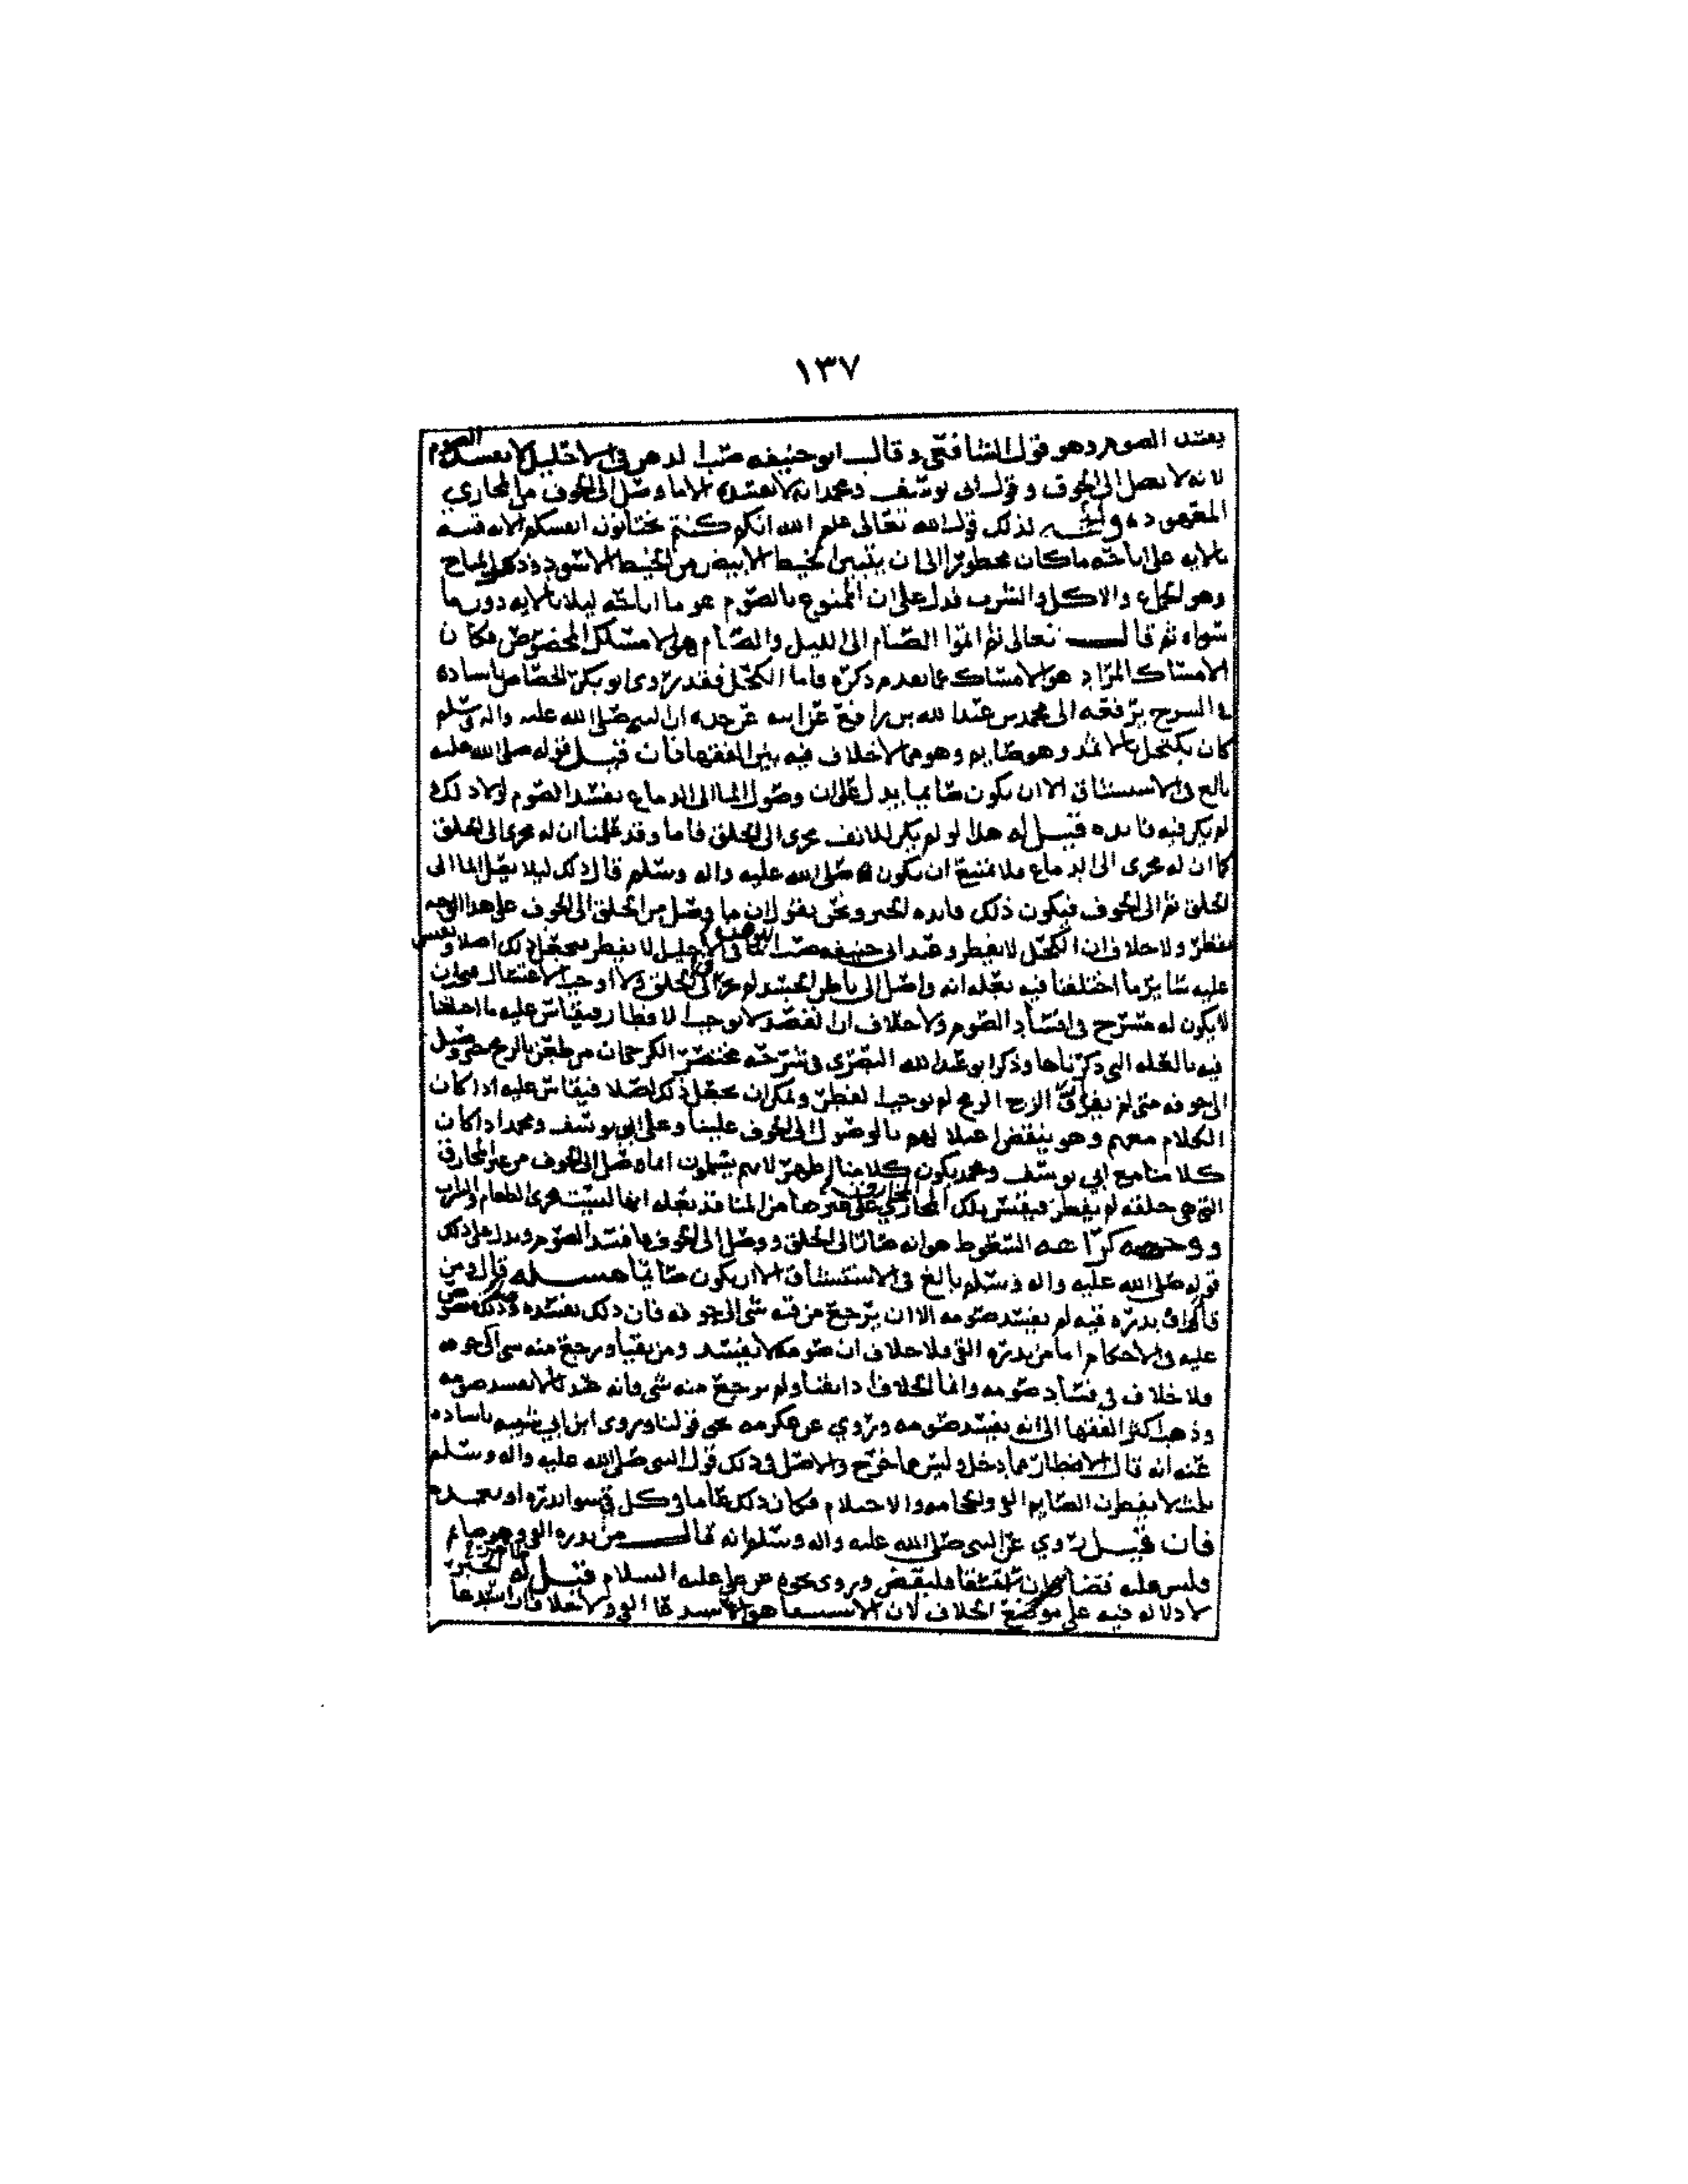 ١٣٧
يفسد الصوم وهو قول الشافعي وقال ابو حنيفه صب الدهن في الاحليل لا يفسد الصوم
لانه لا يصل الى الجوف وقول ابي يوسف ومحمد انه لا يفسده الا ما وصل الى الجوف من المجاري
المعهوده لذلك قول الله تعالى علم الله انكم كنتم تختانون انفسكم الايه
بالايه على اباحته ما كان محظورا الى ان يتبين الخيط الابيض من الخيط الاسود وذكر المباح
وهو الجماع والاكل والشرب فدل على ان الممنوع بالصوم هو ما اباحته ليلا بالايه دون ما
سواه ثم قال تعالى ثم اتموا الصيام الى الليل والصيام هو الامساك المخصوص فكان
الامساك المراد هو الامساك عما تقدم ذكره فاما الكحل فقد روى ابو بكر الجصاص باسناده
في الشرح يرفعه الى محمد بن عبدالله بن رافع عن ابيه عن جده ان النبي صلى الله عليه واله وسلم
كان يكتحل بالاثمد وهو صايم وهو مما لا خلاف فيه بين الفقها فان قيل قوله صلى الله عليه
بالغ في الاستنشاق الا ان يكون صايما يدل على ان وصول الما الى الدماغ يفسد الصوم لولا ذلك
لم يكن فيه فايده قيل له هذا لو لم يكن للانف مجرى الى الحلق فاما وقد علمنا ان له مجرى الى الحلق
كما ان له مجرى الى الدماغ فلا يمتنع ان يكون صلى الله عليه واله وسلم قال ذلك ليلا يصل الما الى
الحلق ثم الى الجوف فيكون ذلك فايده الخبر ونحن نقول ان ما وصل من الحلق الى الجوف على هذا الوجه
يفطر ولا خلاف ان الكحل لا يفطر وعند ابي حنيفه صب الما في الاحليل لا يفطر فنجعل ذلك اصلا ونقيس
عليه ساير ما اختلفنا فيه بعله انه واصل الى باطن الجسد لم الى الحلق ولا اوجب الاغتسال فيجب ان
لا يكون له مسرح في افساد الصوم ولا خلاف ان الفصد لا يوجب الافطار فيقاس عليه ما اختلفنا
فيه بالعله التي ذكرناها وذكر ابو عبدالله البصري في شرحه مختصر الكرخي ان من طعن بالرمح فوصل
الى جوفه متى لم يفارق الزج الرمح لم يوجب الفطر ويمكن ان نجعل ذلك اصلا فيقاس عليه اذا كان
الكلام معهم وهو ينقض اعتلالهم بالوصول الى الجوف علينا وعلى ابي يوسف ومحمد اذا كان
كلامنا مع ابي يوسف ومحمد يكون كلامنا اظهر لانهم يسلمون ان ما وصل الى الجوف من غير المخارق
التي هي خلقه لم يفطر فيقيس تلك المجاري على غيرها من المنافذ بعله انها ليست مجرى الطعام والشراب
ووجه كراهه السعوط هو انه صار الى الحلق ووصل الى الجوف فسد الصوم ويدل على ذلك
قوله صلى الله عليه واله وسلم بالغ في الاستنشاق الا ان يكون صايما مسله قال ومن
قاء او بدره فيه لم يفسد صومه الا ان يرجع من فيه شي الى جوفه فان ذلك يفسده وذلك منصوص
عليه في الاحكام اما من بدره القي فلا خلاف ان صومه لا يفسد ومن تقيا ورجع منه شي الى جوفه
فلا خلاف في فساد صومه وانما الخلاف اذا تقيا ولم يرجع منه شي فانه عندنا لا يفسد صومه
وذهب اكثر الفقها الى انه يفسد صومه وروي عن عكرمه نحو قولنا وروى ابن ابي شيبه باسناده
عنه انه قال الافطار مما دخل وليس مما خرج والاصل في ذلك قول النبي صلى الله عليه واله وسلم
ثلاث لا يفطرن الصايم القي والحجامه والاحتلام فكان ذلك عاما في كل قي سوا بدره او تعمده
فان قيل روي عن النبي صلى الله عليه واله وسلم انه قال من بدره القي وهو صايم
فليس عليه قضا وان استقا فليقض وروى نحوه عن علي عليه السلام قيل له ظاهر الخبر
لا دلاله فيه على موضع الخلاف لان الاستقا هو الاستدعا القي ولا خلاف ان استدعا